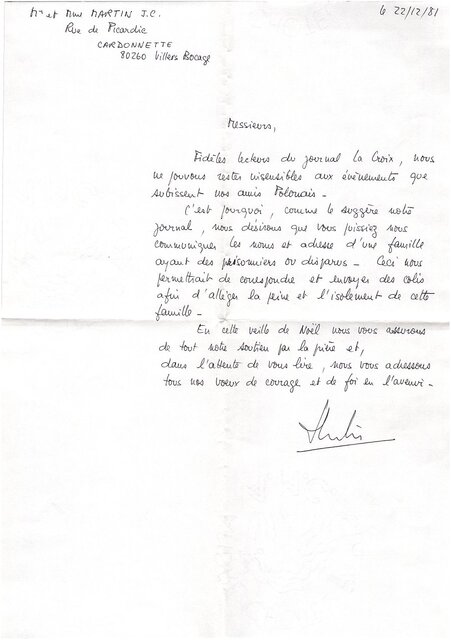 Mr et Mme MARTIN J.C.
Rue de Picardie
CARDONNETTE
80260 Villers Bocage
le 22/12/81
Messieurs,
Fidèles lecteurs du journal la Croix, nous
ne pouvons rester insensibles aux évènements que
subissent nos amis Polonais -
C'est pourquoi, comme le suggère notre
journal, nous désirons que vous puissiez nous
communiquer les noms et adresse d'une famille
ayant des prisonniers ou disparus - Ceci nous
permettrait de correspondre et envoyer des colis
afin d'alléger la peine et l'isolement de cette
famille -
En cette veille de Noël nous vous assurons
de tout notre soutien par la prière et,
dans l'attente de vous lire, nous vous adressons
tous nos voeux de courage et de foi en l'avenir -